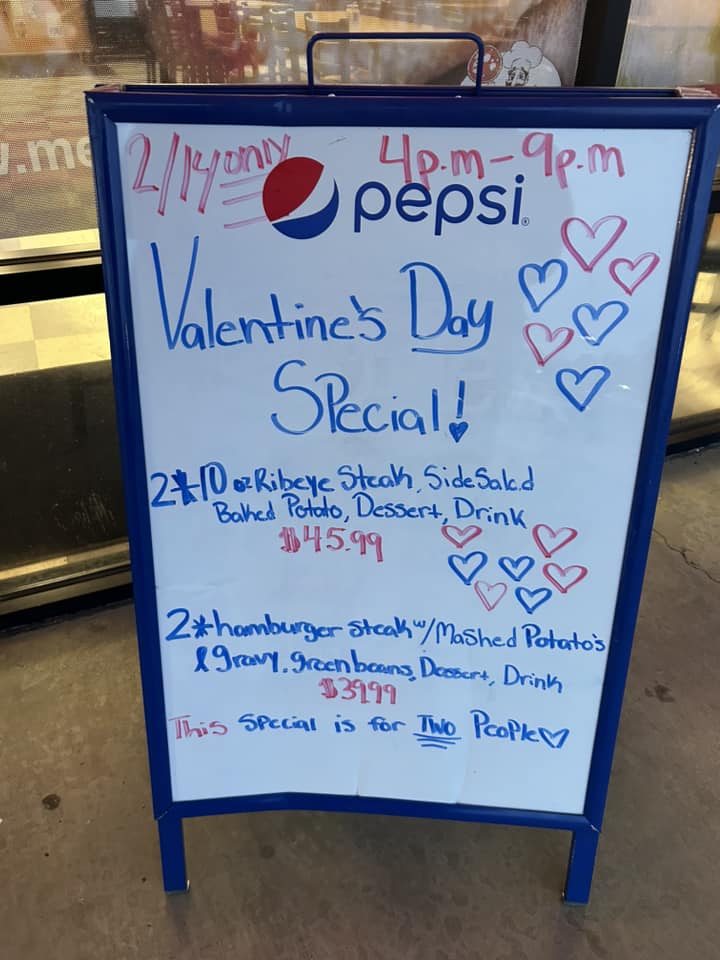 2/14 only 4p.m-9p.m
pepsi
Valentine's Day
Special!
2*10 oz Ribeye Steak, Side Salad
Baked Potato, Dessert, Drink
$45.99
2*hamburger steak w/Mashed Potato's
& gravy, green beans, Dessert, Drink
$39.99
This Special is for TWO People
.me